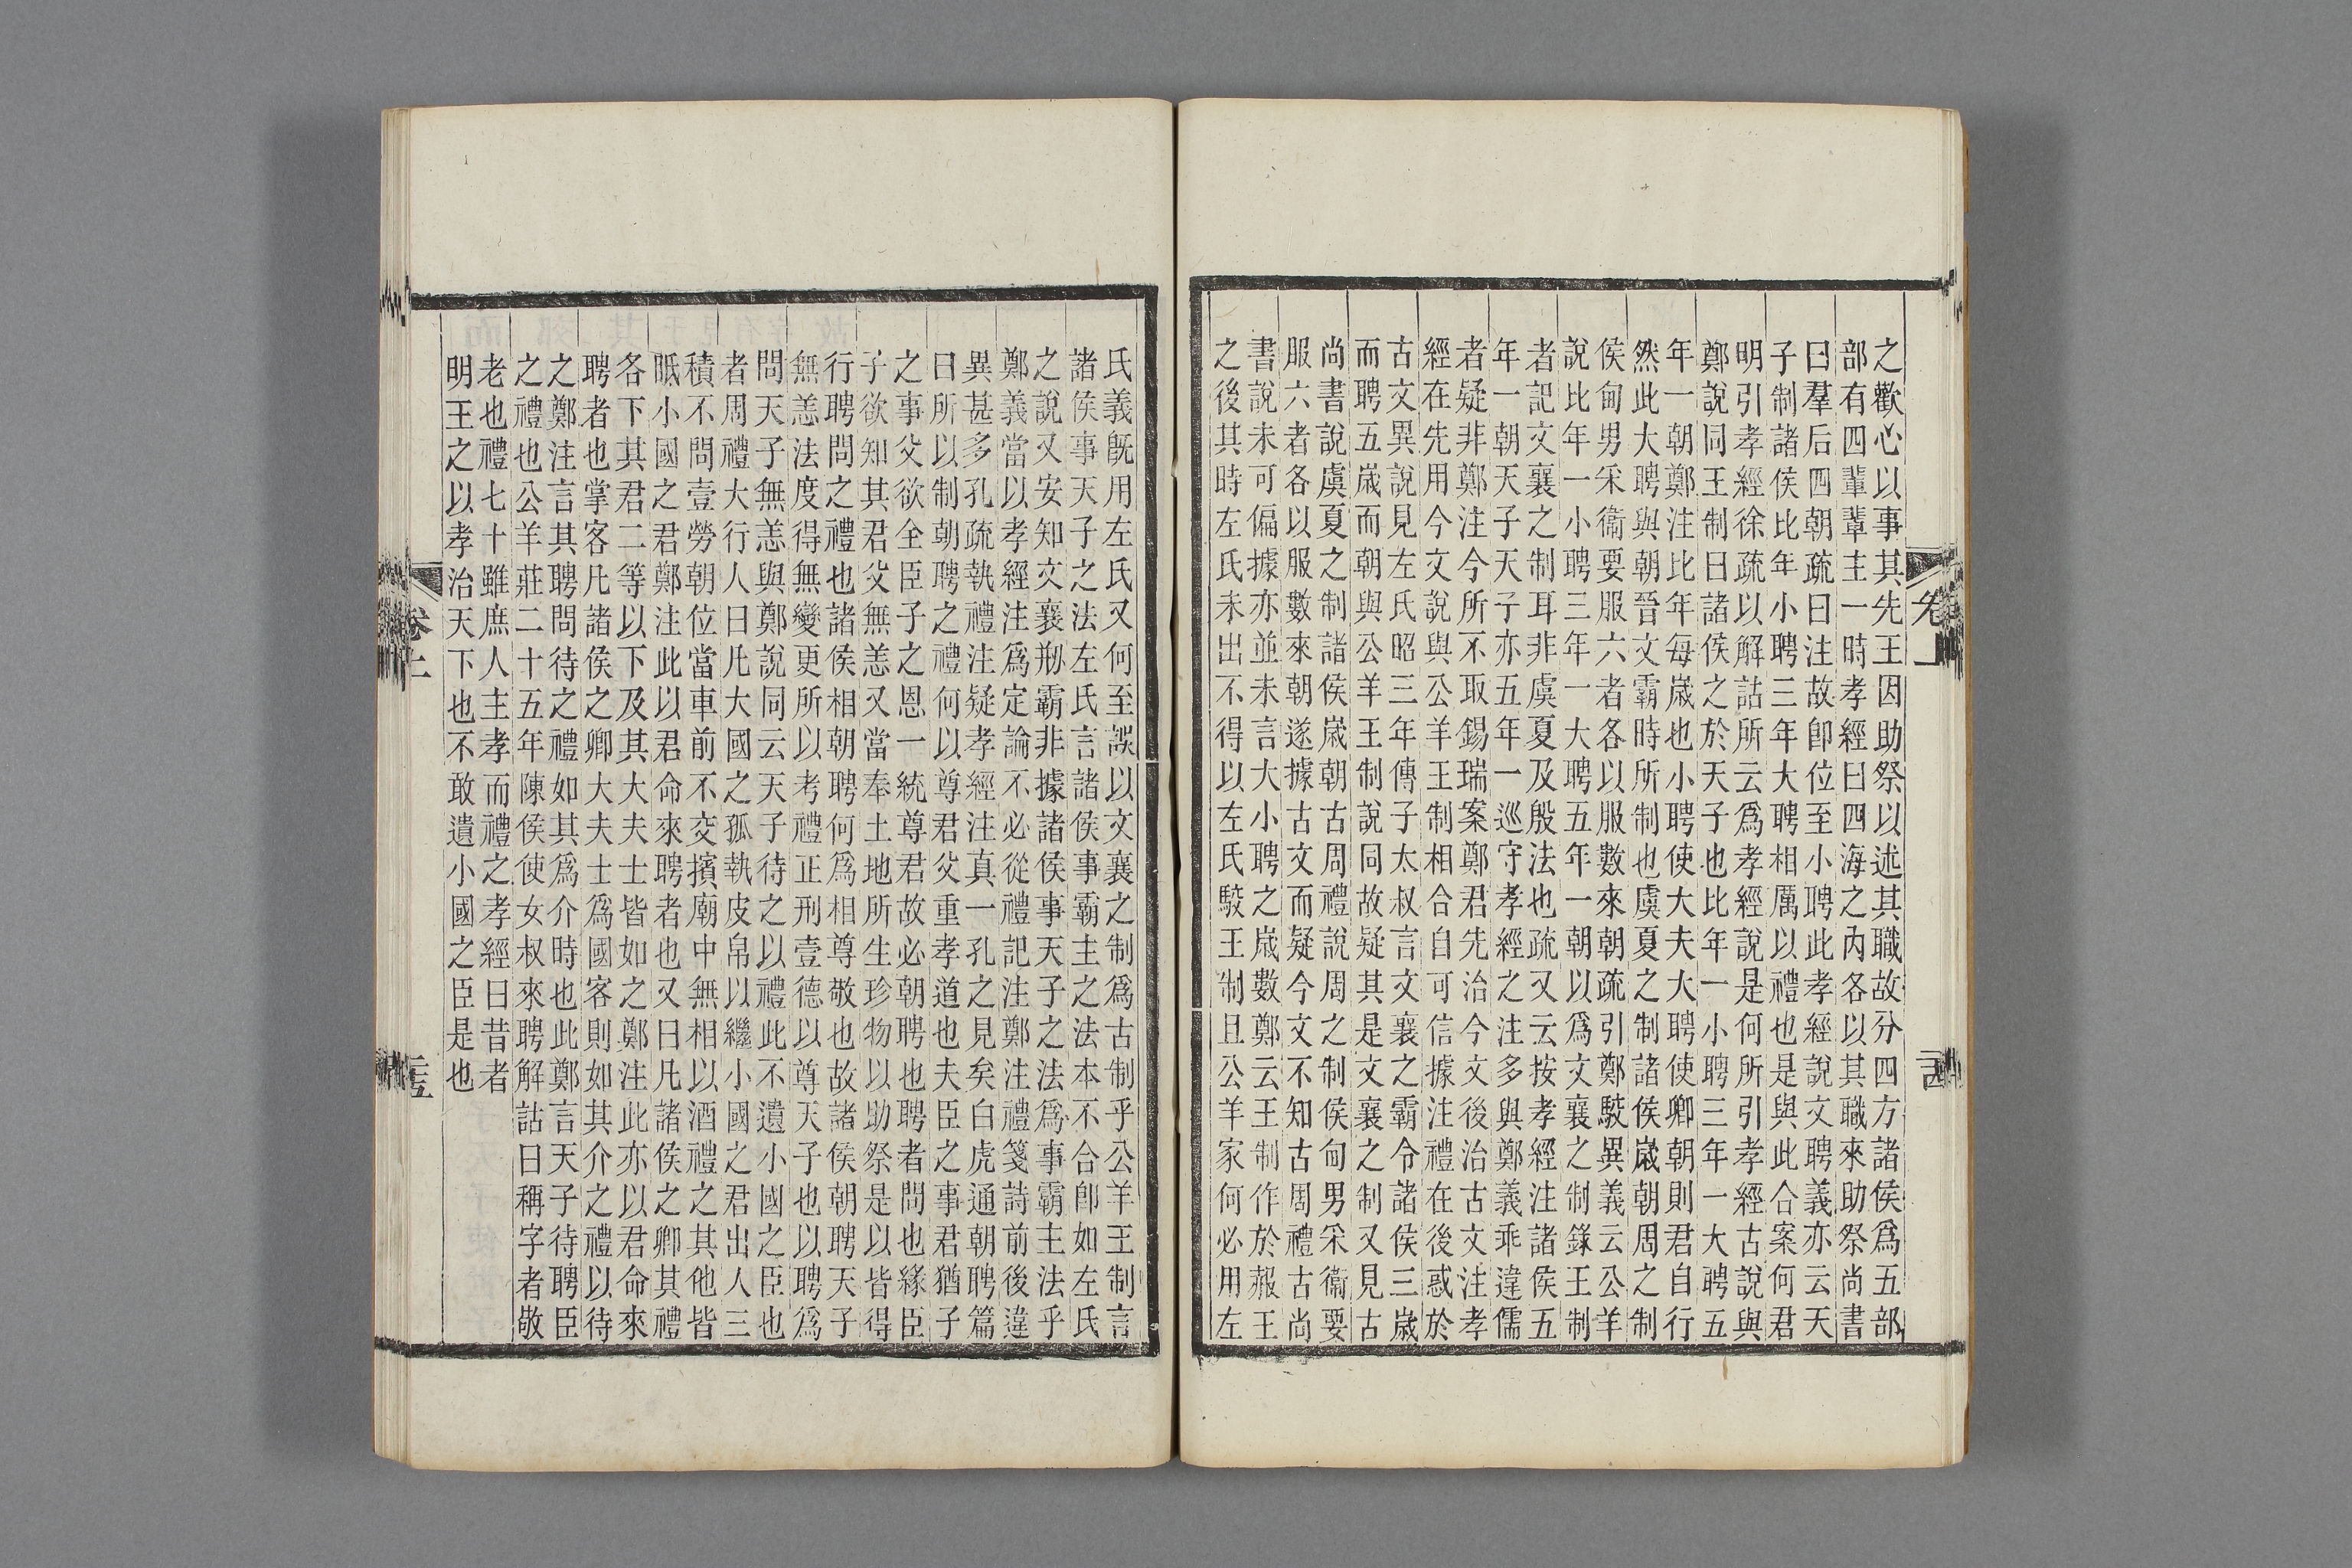 之歡心以事其先王因助祭以述其職故分四方諸侯爲五部
部有四輩輩主一時孝經曰四海之內各以其職來助祭尚書
曰羣后四朝疏曰注故卽位至小聘此孝經說文聘義亦云天
子制諸侯比年小聘三年大聘相厲以禮也是與此合案何君
明引孝經徐疏以解詁所云爲孝經說是何所引孝經古說與
鄭說同王制曰諸侯之於天子也比年一小聘三年一大聘五
年一朝鄭注比年每歲也小聘使大夫大聘使卿朝則君自行
然此大聘與朝晉文霸時所制也虞夏之制諸侯歲朝周之制
侯甸男采衞要服六者各以服數來朝疏引鄭駮異義云公羊
說比年一小聘三年一大聘五年一朝以爲文襄之制錄王制
者記文襄之制耳非虞夏及殷法也疏又云按孝經注諸侯五
年一朝天子天子亦五年一巡守孝經之注多與鄭義乖違儒
者疑非鄭注今所不取錫瑞案鄭君先治今文後治古文注孝
經在先用今文說與公羊王制相合自可信據注禮在後惑於
古文異說見左氏昭三年傳子太叔言文襄之霸令諸侯三歲
而聘五歲而朝與公羊王制說同故疑其是文襄之制又見古
尚書說虞夏之制諸侯歲朝古周禮說周之制侯甸男采衞要
服六者各以服數來朝遂據古文而疑今文不知古周禮古尚
書說未可偏據亦並未言大小聘之歲數鄭云王制作於赧王
之後其時左氏未出不得以左氏駮王制且公羊家何必用左
卷上
二十四
氏義旣用左氏又何至誤以文襄之制爲古制乎公羊王制言
諸侯事天子之法左氏言諸侯事霸主之法本不合卽如左氏
之說又安知文襄刱霸非據諸侯事天子之法爲事霸主法乎
鄭義當以孝經注爲定論不必從禮記注鄭注禮箋詩前後違
異甚多孔疏執禮注疑孝經注真一孔之見矣白虎通朝聘篇
曰所以制朝聘之禮何以尊君父重孝道也夫臣之事君猶子
之事父欲全臣子之恩一統尊君故必朝聘也聘者問也緣臣
子欲知其君父無恙又當奉土地所生珍物以助祭是以皆得
行聘問之禮也諸侯相朝聘何爲相尊敬也故諸侯朝聘天子
無恙法度得無變更所以考禮正刑壹德以尊天子也以聘爲
問天子無恙與鄭說同云天子待之以禮此不遺小國之臣也
者周禮大行人曰凡大國之孤執皮帛以繼小國之君出人三
積不問壹勞朝位當車前不交擯廟中無相以酒禮之其他皆
眂小國之君鄭注此以君命來聘者也又曰凡諸侯之卿其禮
各下其君二等以下及其大夫士皆如之鄭注此亦以君命來
聘者也掌客凡諸侯之卿大夫士爲國客則如其介之禮以待
之鄭注言其聘問待之禮如其爲介時也此鄭言天子待聘臣
之禮也公羊莊二十五年陳侯使女叔來聘解詁曰稱字者敬
老也禮七十雖庶人主孝而禮之孝經曰昔者
明王之以孝治天下也不敢遺小國之臣是也
卷上
二十五